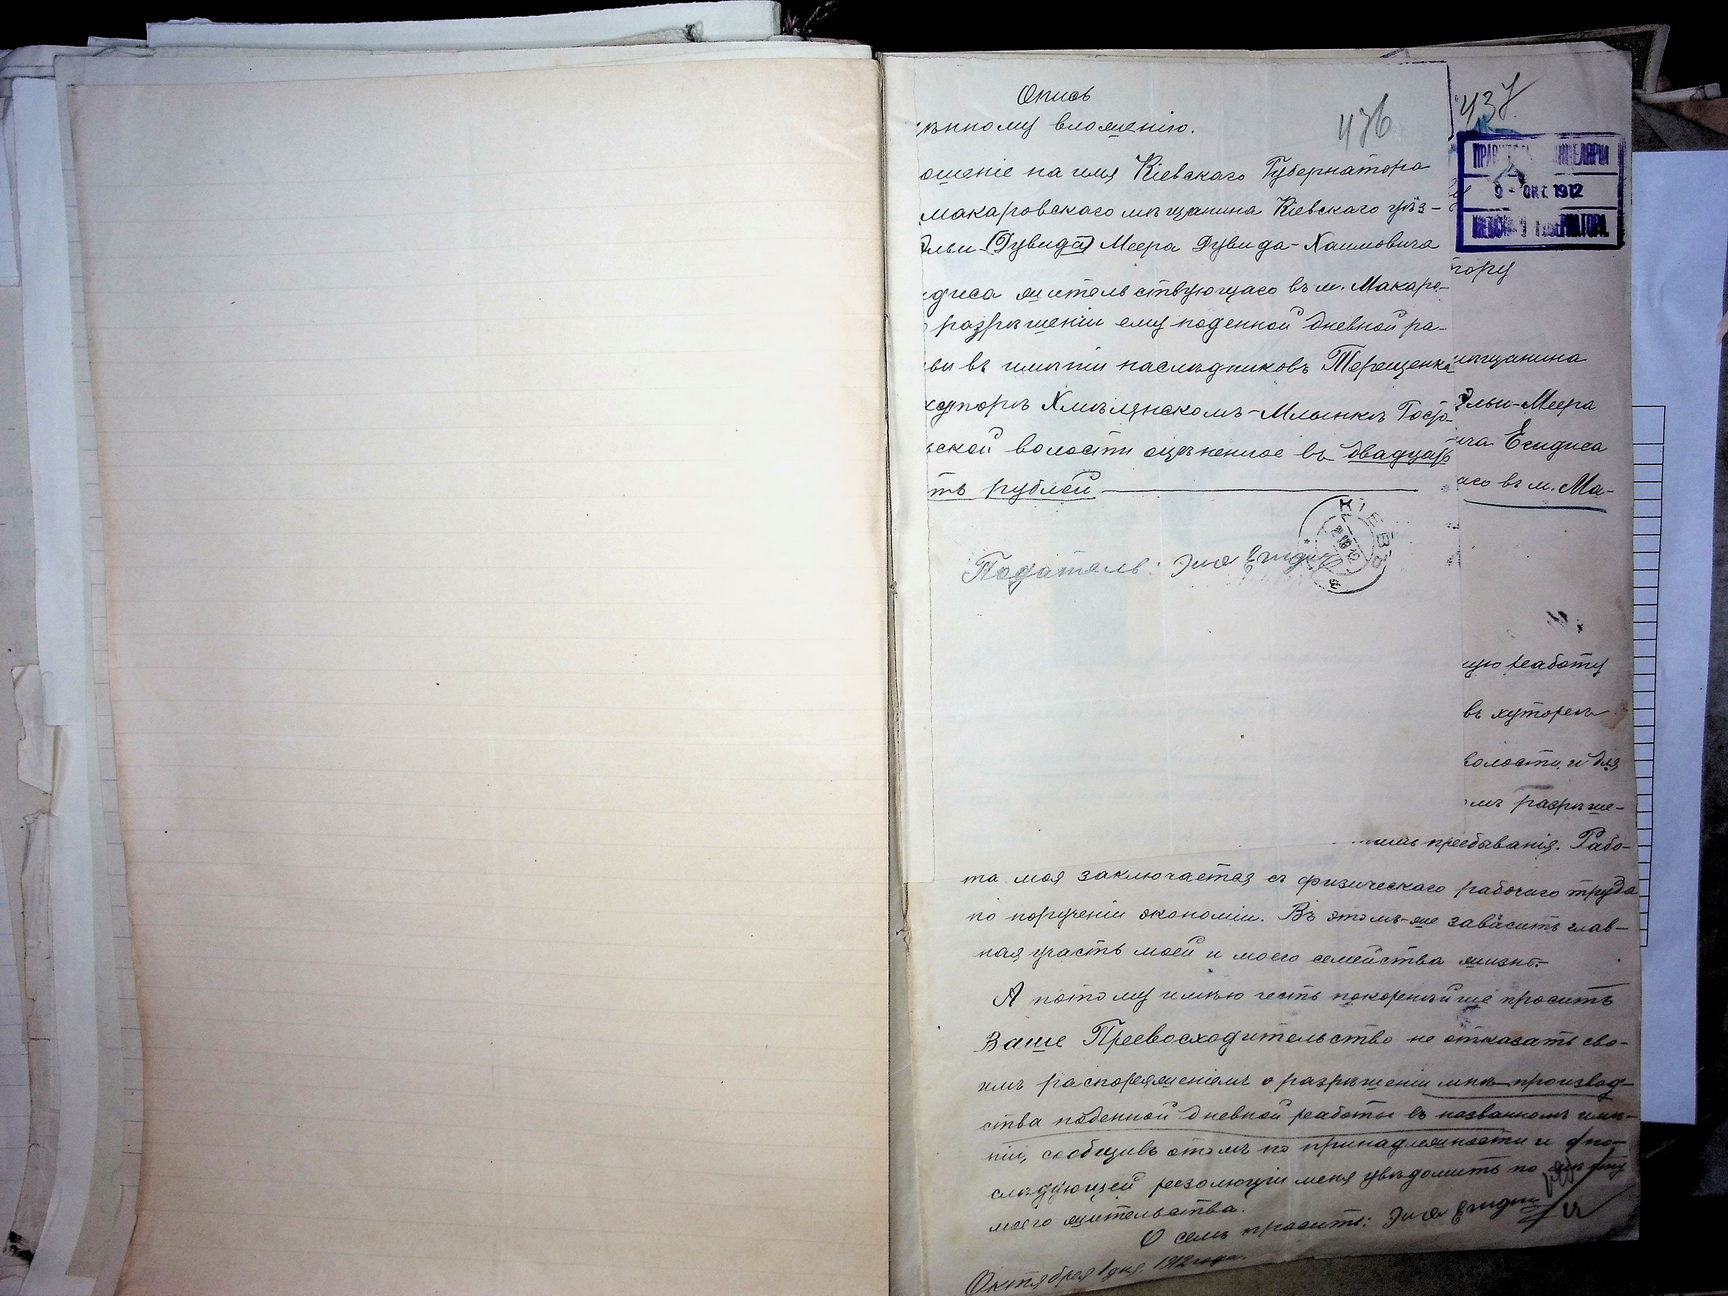 Опись
ѣнному вложенію.
476
437
ошеніе на имя Кіевскаго Губернатора
макаровскаго мѣщанина Кіевскаго уѣз-
ольи (Дувида) Меера Дувида-Хаимовича
диса жительствующаго въ м. Макаро-
разрѣшеніи ему поденной дневной ра-
вы въ имѣніи наслѣдниковъ Терещенко
хуторѣ Хмѣлянскомъ-Млынкѣ Гост-
ской волости оцѣненное въ двадцать
ть рублей
КІЕВЪ
Податель:
9 - ОКТ. 1912
ГУБЕРНАТОРА
тору
мѣщанина
ольи-Меера
ича Егидиса
аго въ м. Ма-
ную работу
въ хуторѣ
волости, и для
омъ разрѣше-
пребыванія. Рабо-
та моя заключается съ физическаго рабочаго труда
по порученіи экономіи. Въ этомъ-же зависитъ глав-
ная участь моей и моего семейства жизнь.
А потому имѣю честь покорнѣйше просить
Ваше Превосходительство не отказать сво-
имъ распоряженіемъ о разрѣшеніи мнѣ производ-
ства поденной дневной работы въ названномъ имѣ-
ніи, сообщивъ отомъ по принадлежности и о по-
слѣдующей резолюціи меня увѣдомить по
моего жительства.
О семъ проситъ:
Октября 1 дня 1912 года.